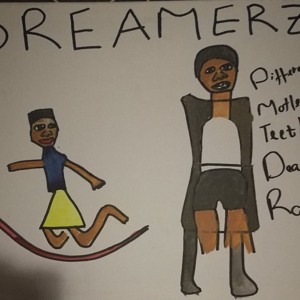 DREAMERZ
Differe
Mothe
Teet
Dea
Ro